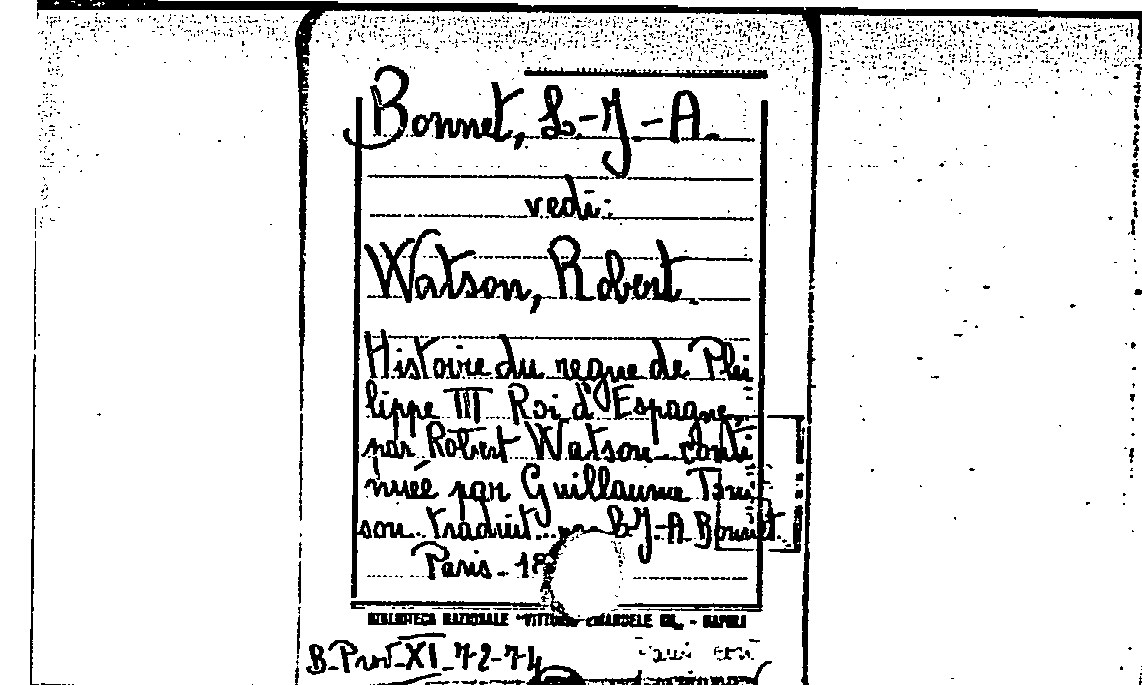 Bonnet, L-J-A.
vedi:
Watson, Robert.
Histoire du regne de Phi
lippe III Roi d'Espagne,
par Robert Watson conti
nuée par Guillaume Tom
son traduit par L-J-A Bonnet.
Paris - 18
BIBLIOTECA NAZIONALE "VITTORIO EMANUELE III" - NAPOLI
B. Prov. XI 72-74